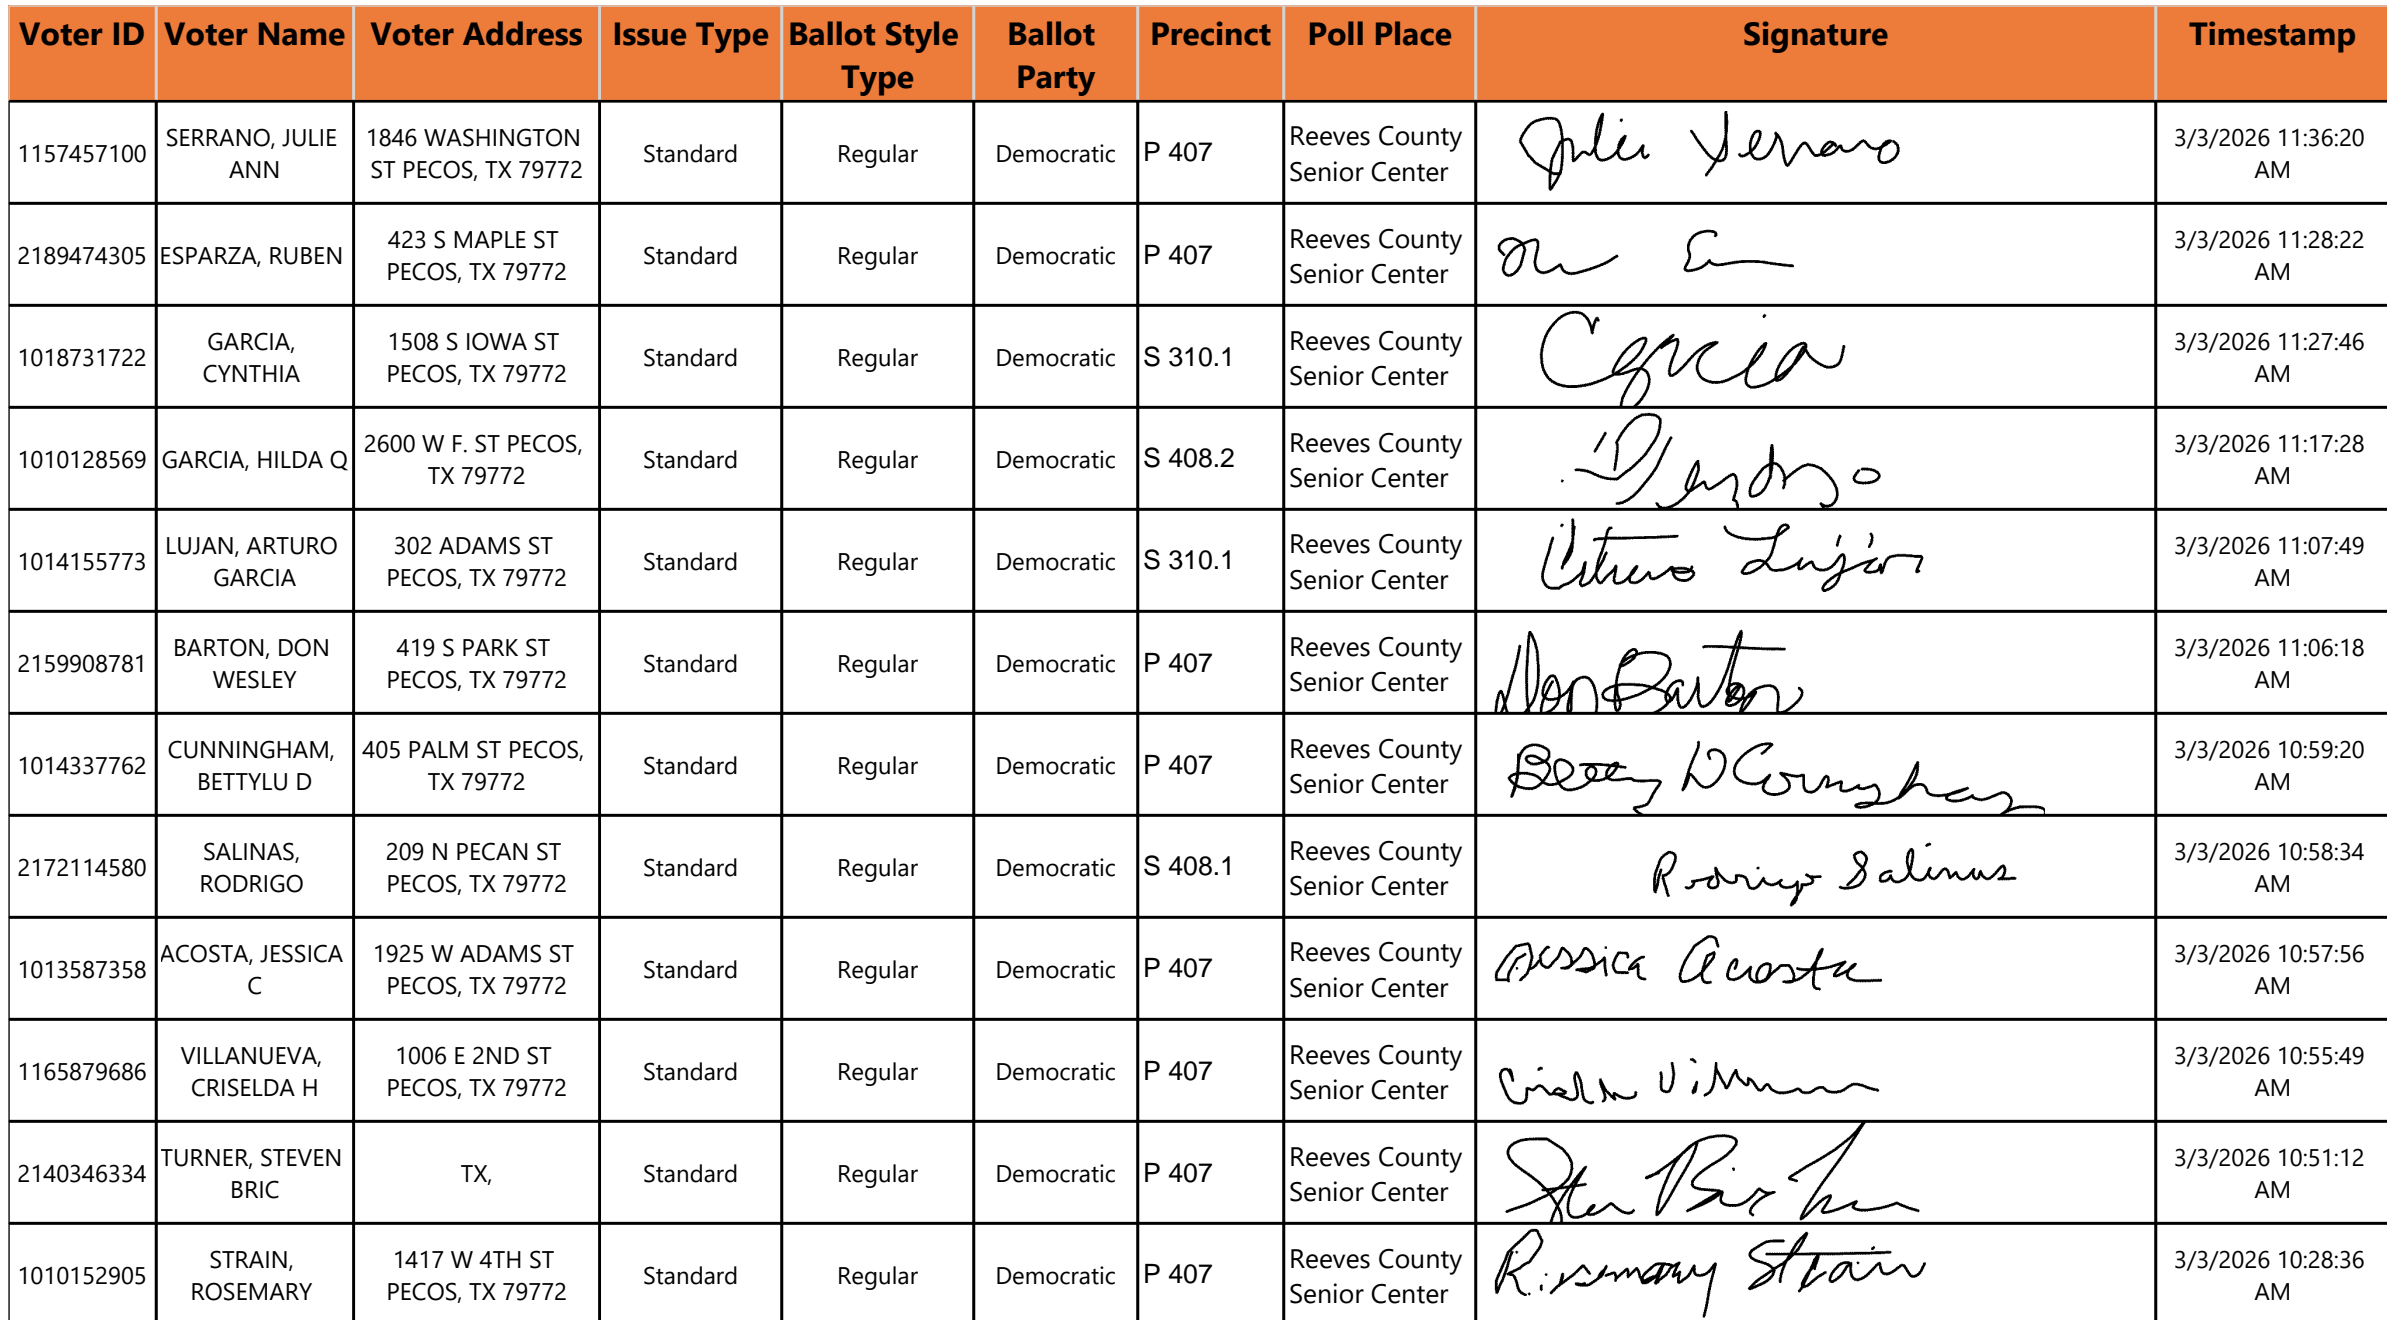 Voter ID Voter Name Voter Address Issue Type Ballot Style Type Ballot Party Precinct Poll Place Signature Timestamp
1157457100 SERRANO, JULIE ANN 1846 WASHINGTON ST PECOS, TX 79772 Standard Regular Democratic P 407 Reeves County Senior Center Julie Serrano 3/3/2026 11:36:20 AM
2189474305 ESPARZA, RUBEN 423 S MAPLE ST PECOS, TX 79772 Standard Regular Democratic P 407 Reeves County Senior Center 3/3/2026 11:28:22 AM
1018731722 GARCIA, CYNTHIA 1508 S IOWA ST PECOS, TX 79772 Standard Regular Democratic S 310.1 Reeves County Senior Center 3/3/2026 11:27:46 AM
1010128569 GARCIA, HILDA Q 2600 W F. ST PECOS, TX 79772 Standard Regular Democratic S 408.2 Reeves County Senior Center 3/3/2026 11:17:28 AM
1014155773 LUJAN, ARTURO GARCIA 302 ADAMS ST PECOS, TX 79772 Standard Regular Democratic S 310.1 Reeves County Senior Center Arturo Luján 3/3/2026 11:07:49 AM
2159908781 BARTON, DON WESLEY 419 S PARK ST PECOS, TX 79772 Standard Regular Democratic P 407 Reeves County Senior Center Don Barton 3/3/2026 11:06:18 AM
1014337762 CUNNINGHAM, BETTYLU D 405 PALM ST PECOS, TX 79772 Standard Regular Democratic P 407 Reeves County Senior Center Betty D 3/3/2026 10:59:20 AM
2172114580 SALINAS, RODRIGO 209 N PECAN ST PECOS, TX 79772 Standard Regular Democratic S 408.1 Reeves County Senior Center Rodrigo Salinas 3/3/2026 10:58:34 AM
1013587358 ACOSTA, JESSICA C 1925 W ADAMS ST PECOS, TX 79772 Standard Regular Democratic P 407 Reeves County Senior Center Jessica Acosta 3/3/2026 10:57:56 AM
1165879686 VILLANUEVA, CRISELDA H 1006 E 2ND ST PECOS, TX 79772 Standard Regular Democratic P 407 Reeves County Senior Center 3/3/2026 10:55:49 AM
2140346334 TURNER, STEVEN BRIC TX, Standard Regular Democratic P 407 Reeves County Senior Center 3/3/2026 10:51:12 AM
1010152905 STRAIN, ROSEMARY 1417 W 4TH ST PECOS, TX 79772 Standard Regular Democratic P 407 Reeves County Senior Center Rosemary Strain 3/3/2026 10:28:36 AM